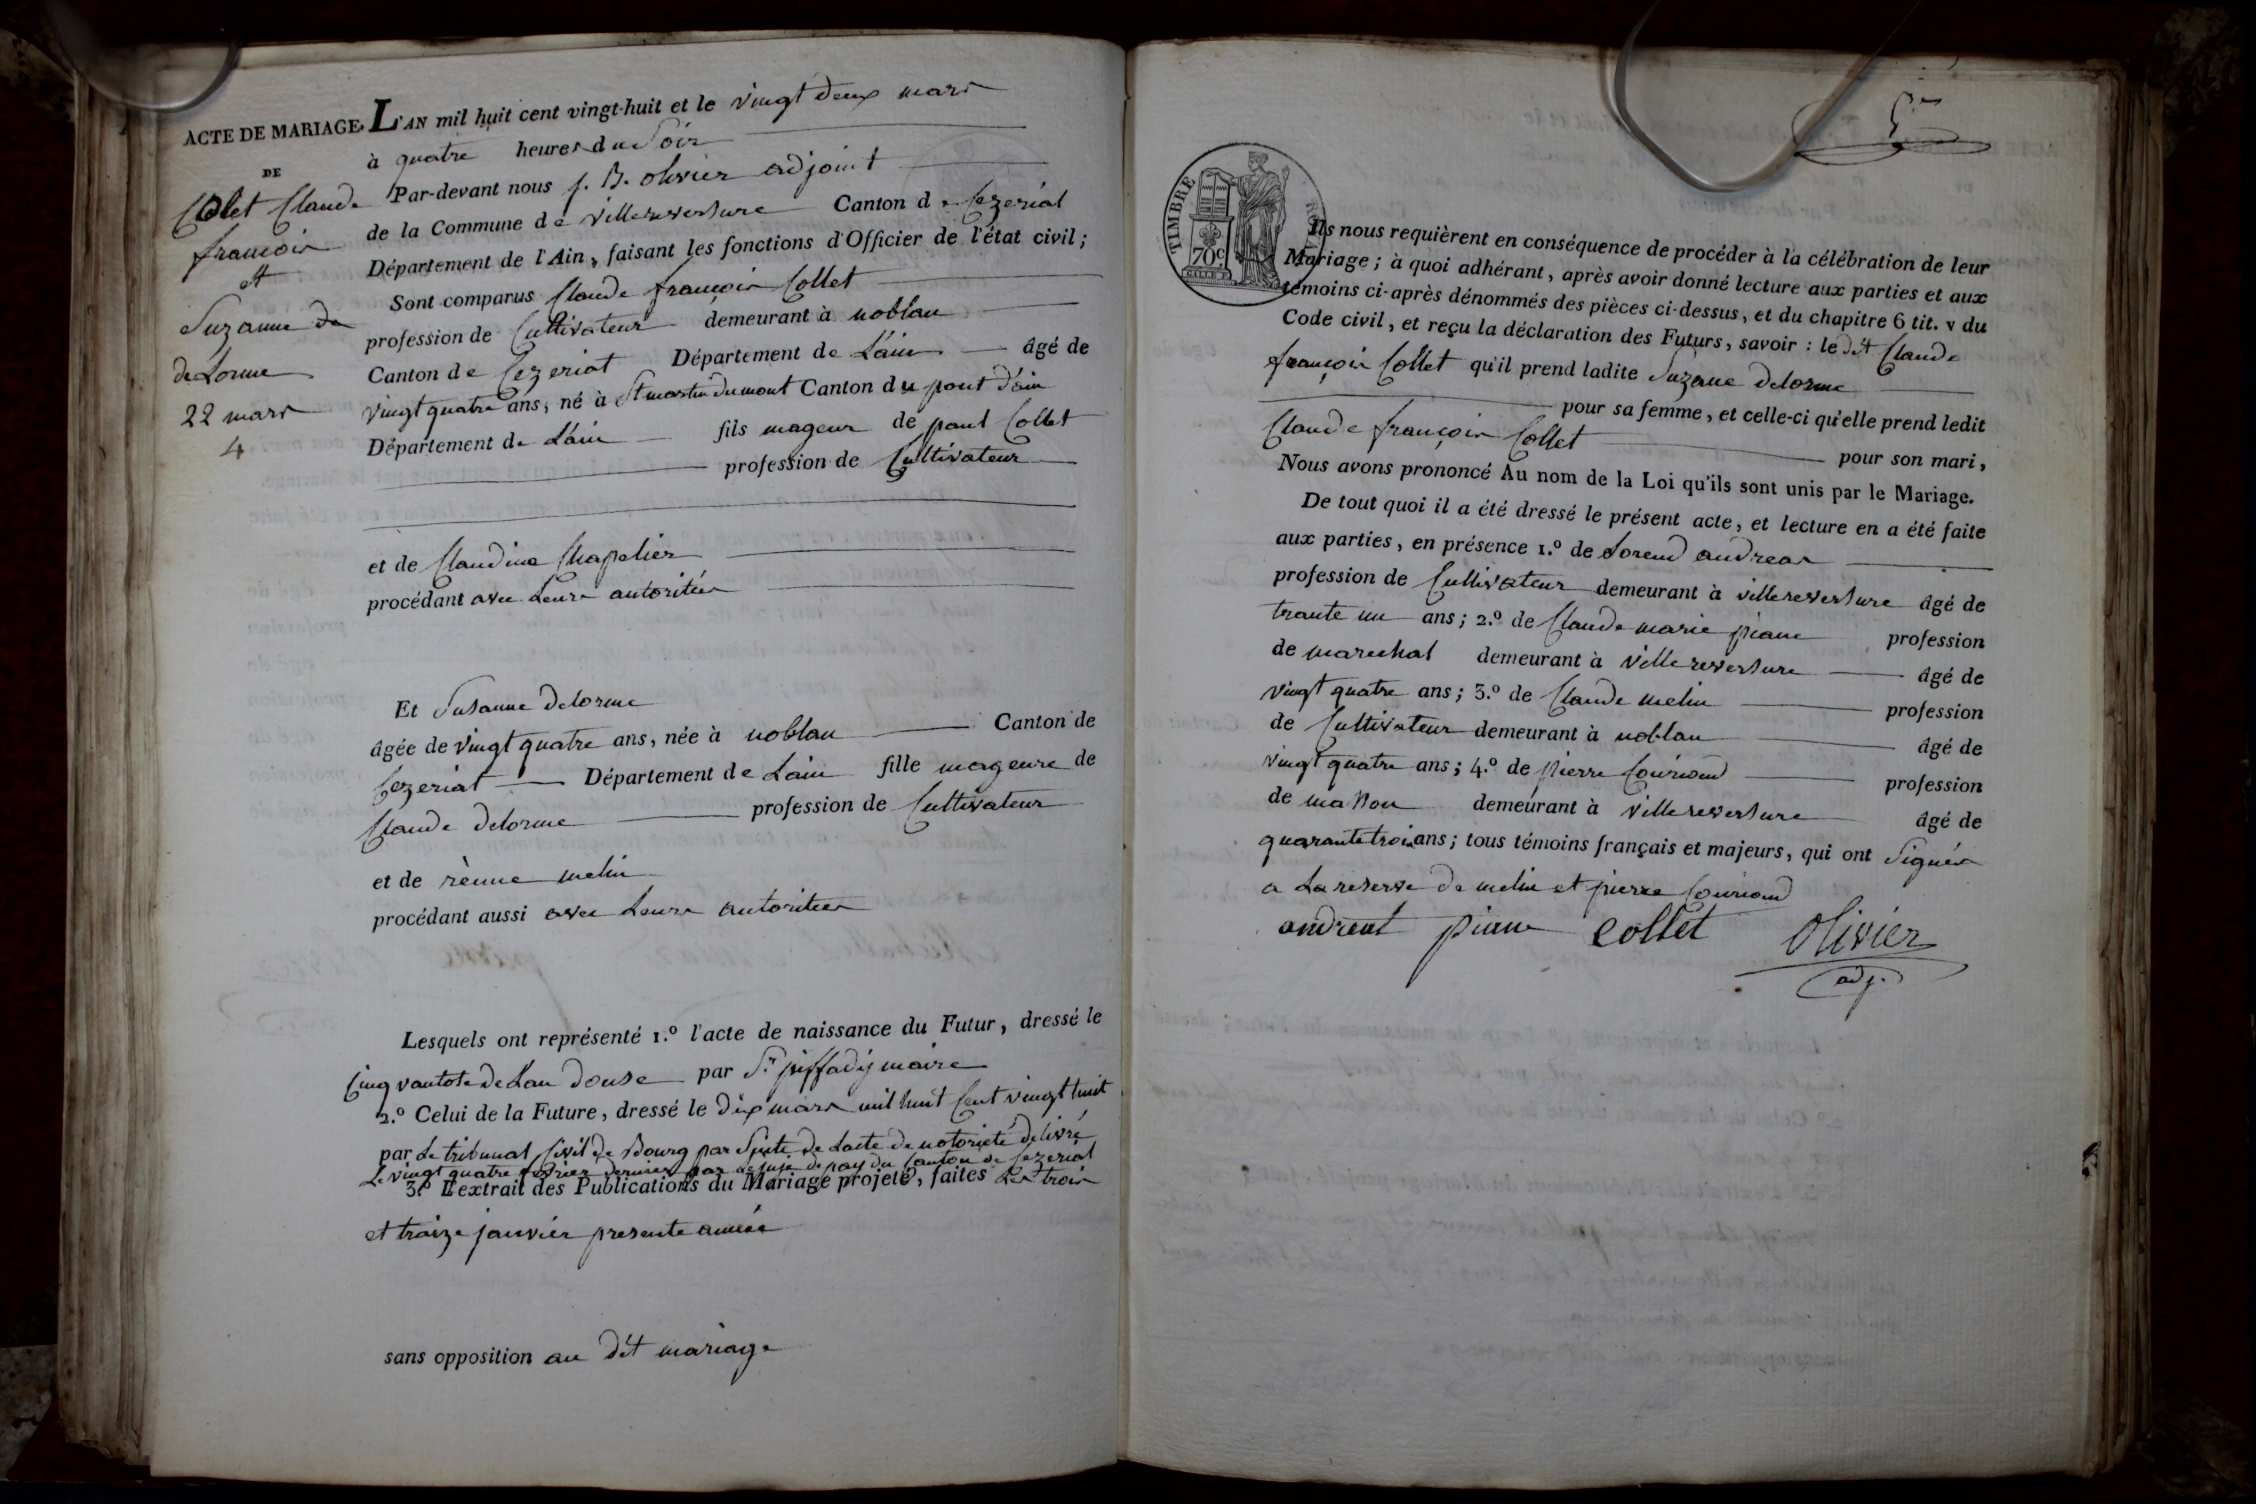 ACTE DE MARIAGE,
DE
Colet Claude
françois
et
Suzanne de
de Lorme
22 mars
4
L'AN mil huit cent vingt-huit et le vingt deux mars
à quatre heures du Soir
Par-devant nous J. B. olivier adjoint
de la Commune de villereversure Canton de Cezeriat
Département de l'Ain, faisant les fonctions d'Officier de l'état civil;
Sont comparus Claude françois Collet
profession de Cultivateur demeurant à noblan
Canton de Cezeriat Département de L'ain âgé de
vingt quatre ans, né à St martin Dumont Canton du pont d'ain
Département de L'ain fils mageur de paul Collet
profession de Cultivateur
et de Claudine Chapelier
procédant avec Leurs autoritées
Et Susanne Delorme
âgée de vingt quatre ans, née à noblan Canton de
Cezeriat Département de Lain fille mageure de
Claude Delorme profession de Cultivateur
et de rènne melin
procédant aussi avec Leurs autoritees
Lesquels ont représenté 1.º l'acte de naissance du Futur, dressé le
Cinq vantose de Lan Douse par Sr. piffady maire
2.º Celui de la Future, dressé le Dix mars mil huit Cent vingt huit
par Le tribunal Civil de Bourg par Suite de Lacte de notorieté delivré
Le vingt quatre fevrier dernier par le juje de pay du Canton de Cezeriat
3.º L'extrait des Publications du Mariage projeté, faites Les trois
et traize janvier presente année
sans opposition au Dit mariage
5me
TIMBRE ROYAL
70c
Ils nous requièrent en conséquence de procéder à la célébration de leur
Mariage; à quoi adhérant, après avoir donné lecture aux parties et aux
témoins ci-après dénommés des pièces ci-dessus, et du chapitre 6 tit. v du
Code civil, et reçu la déclaration des Futurs, savoir: le dit Claude
françois Collet qu'il prend ladite Suzane Delorme
pour sa femme, et celle-ci qu'elle prend ledit
Claude françois Collet pour son mari,
Nous avons prononcé Au nom de la Loi qu'ils sont unis par le Mariage.
De tout quoi il a été dressé le présent acte, et lecture en a été faite
aux parties, en présence 1.º de Lorend andreas
profession de Cultivateur demeurant à villereversure âgé de
trante un ans; 2.º de Claude marie piane profession
de marechal demeurant à villereversure âgé de
vingt quatre ans; 3.º de Claude melin profession
de Cultivateur demeurant à noblan âgé de
vingt quatre ans; 4.º de pierre Couriond profession
de maSon demeurant à villereversure âgé de
quarante trois ans; tous témoins français et majeurs, qui ont Signés
a La reserve de melin et pierre Couriond
andreat piane Collet olivier
adj.